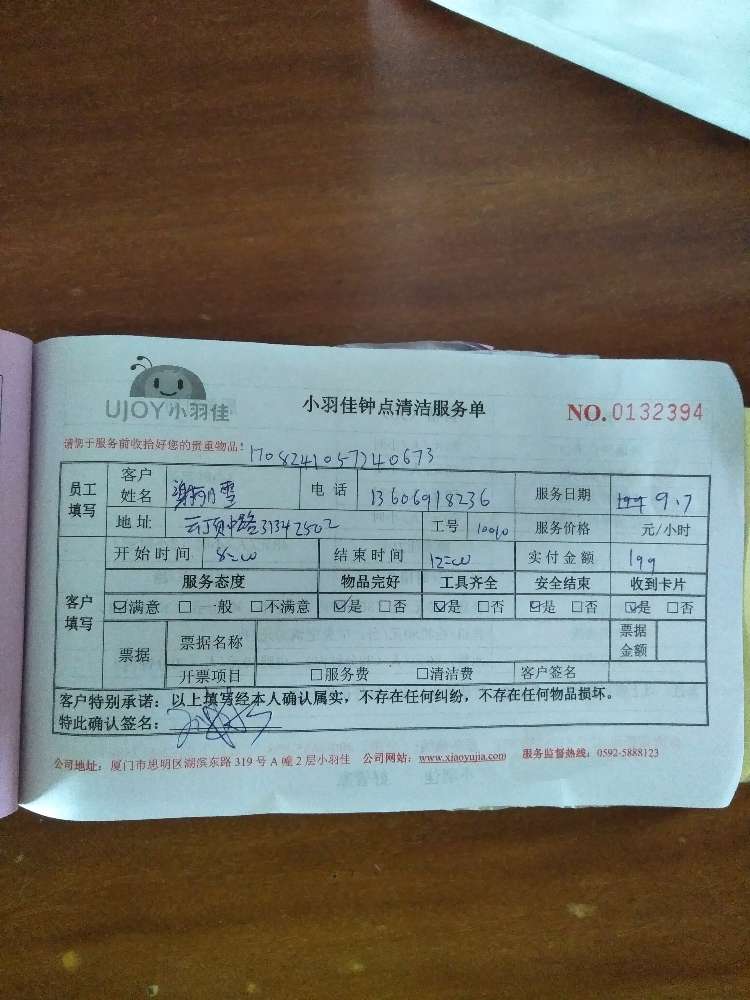 UJOY小羽佳
小羽佳钟点清洁服务单
NO. 0132394
请您于服务前收拾好您的贵重物品!
1708241057240673
员工填写 客户姓名 电话 13606918236 服务日期 9.7
地址 云顶中路31342502 工号 服务价格 元/小时
客户填写 开始时间 8:00 结束时间 12:00 实付金额 199
服务态度 物品完好 工具齐全 安全结束 收到卡片
☑满意 □一般 □不满意 ☑是 □否 ☑是 □否 ☑是 □否 ☑是 □否
票据 票据名称 票据金额
开票项目 □服务费 □清洁费 客户签名
客户特别承诺:以上填写经本人确认属实,不存在任何纠纷,不存在任何物品损坏。
特此确认签名:
公司地址:厦门市思明区湖滨东路 319 号 A 幢 2 层小羽佳 公司网站:www.xiaoyujia.com 服务监督热线:0592-5888123